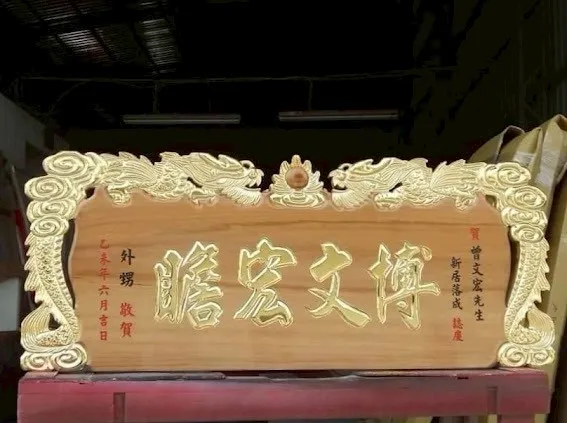 賀 曾文宏先生
新居落成 誌慶
博文宏瞻
外甥 敬賀
乙未年六月吉日